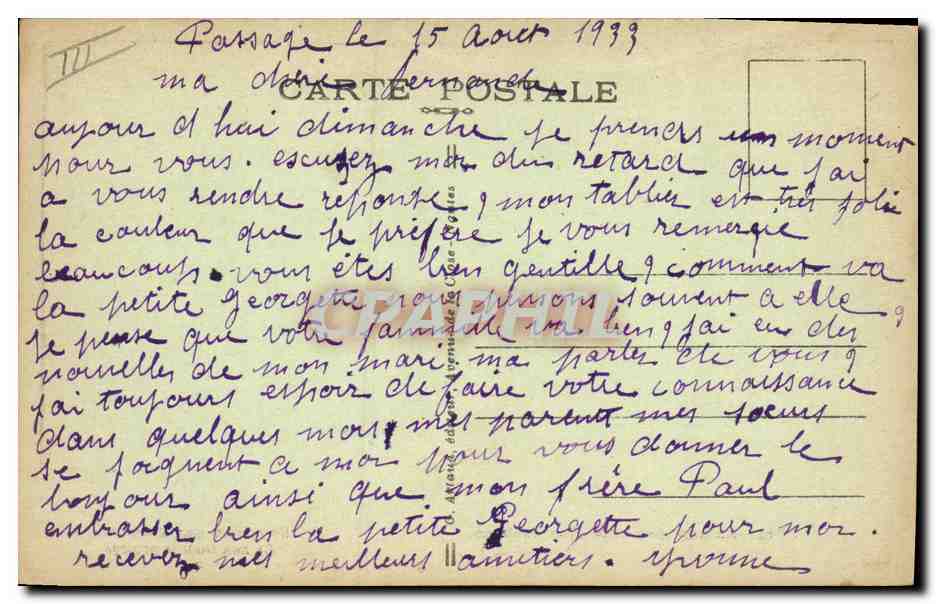 III
Passage le 15 Aout 1933
ma chère fernande
CARTE POSTALE
aujour d hui dimanche je prends un moment
pour vous. escusez moi du retard que j'ai
a vous rendre reponse, mon tablier est très jolie
la couleur que je préfère je vous remercie
beaucoup. vous étes bien gentille, comment va
la petite Georgette nous pensons souvent a elle
je pense que votre famille va bien, j'ai eu des
nouvelles de mon mari ma parlez de vous,
j'ai toujours espoir de faire votre connaissance
dans quelques mois, mes parent mes soeurs
se joignent a moi pour vous donner le
bonjour ainsi que mon frère Paul
enbrasser bien la petite Georgette pour moi.
recevez mes meilleurs amitiers. yvonne
G. Artaud, éditeur, Avenue de la Close, Nantes
CPAPHIL